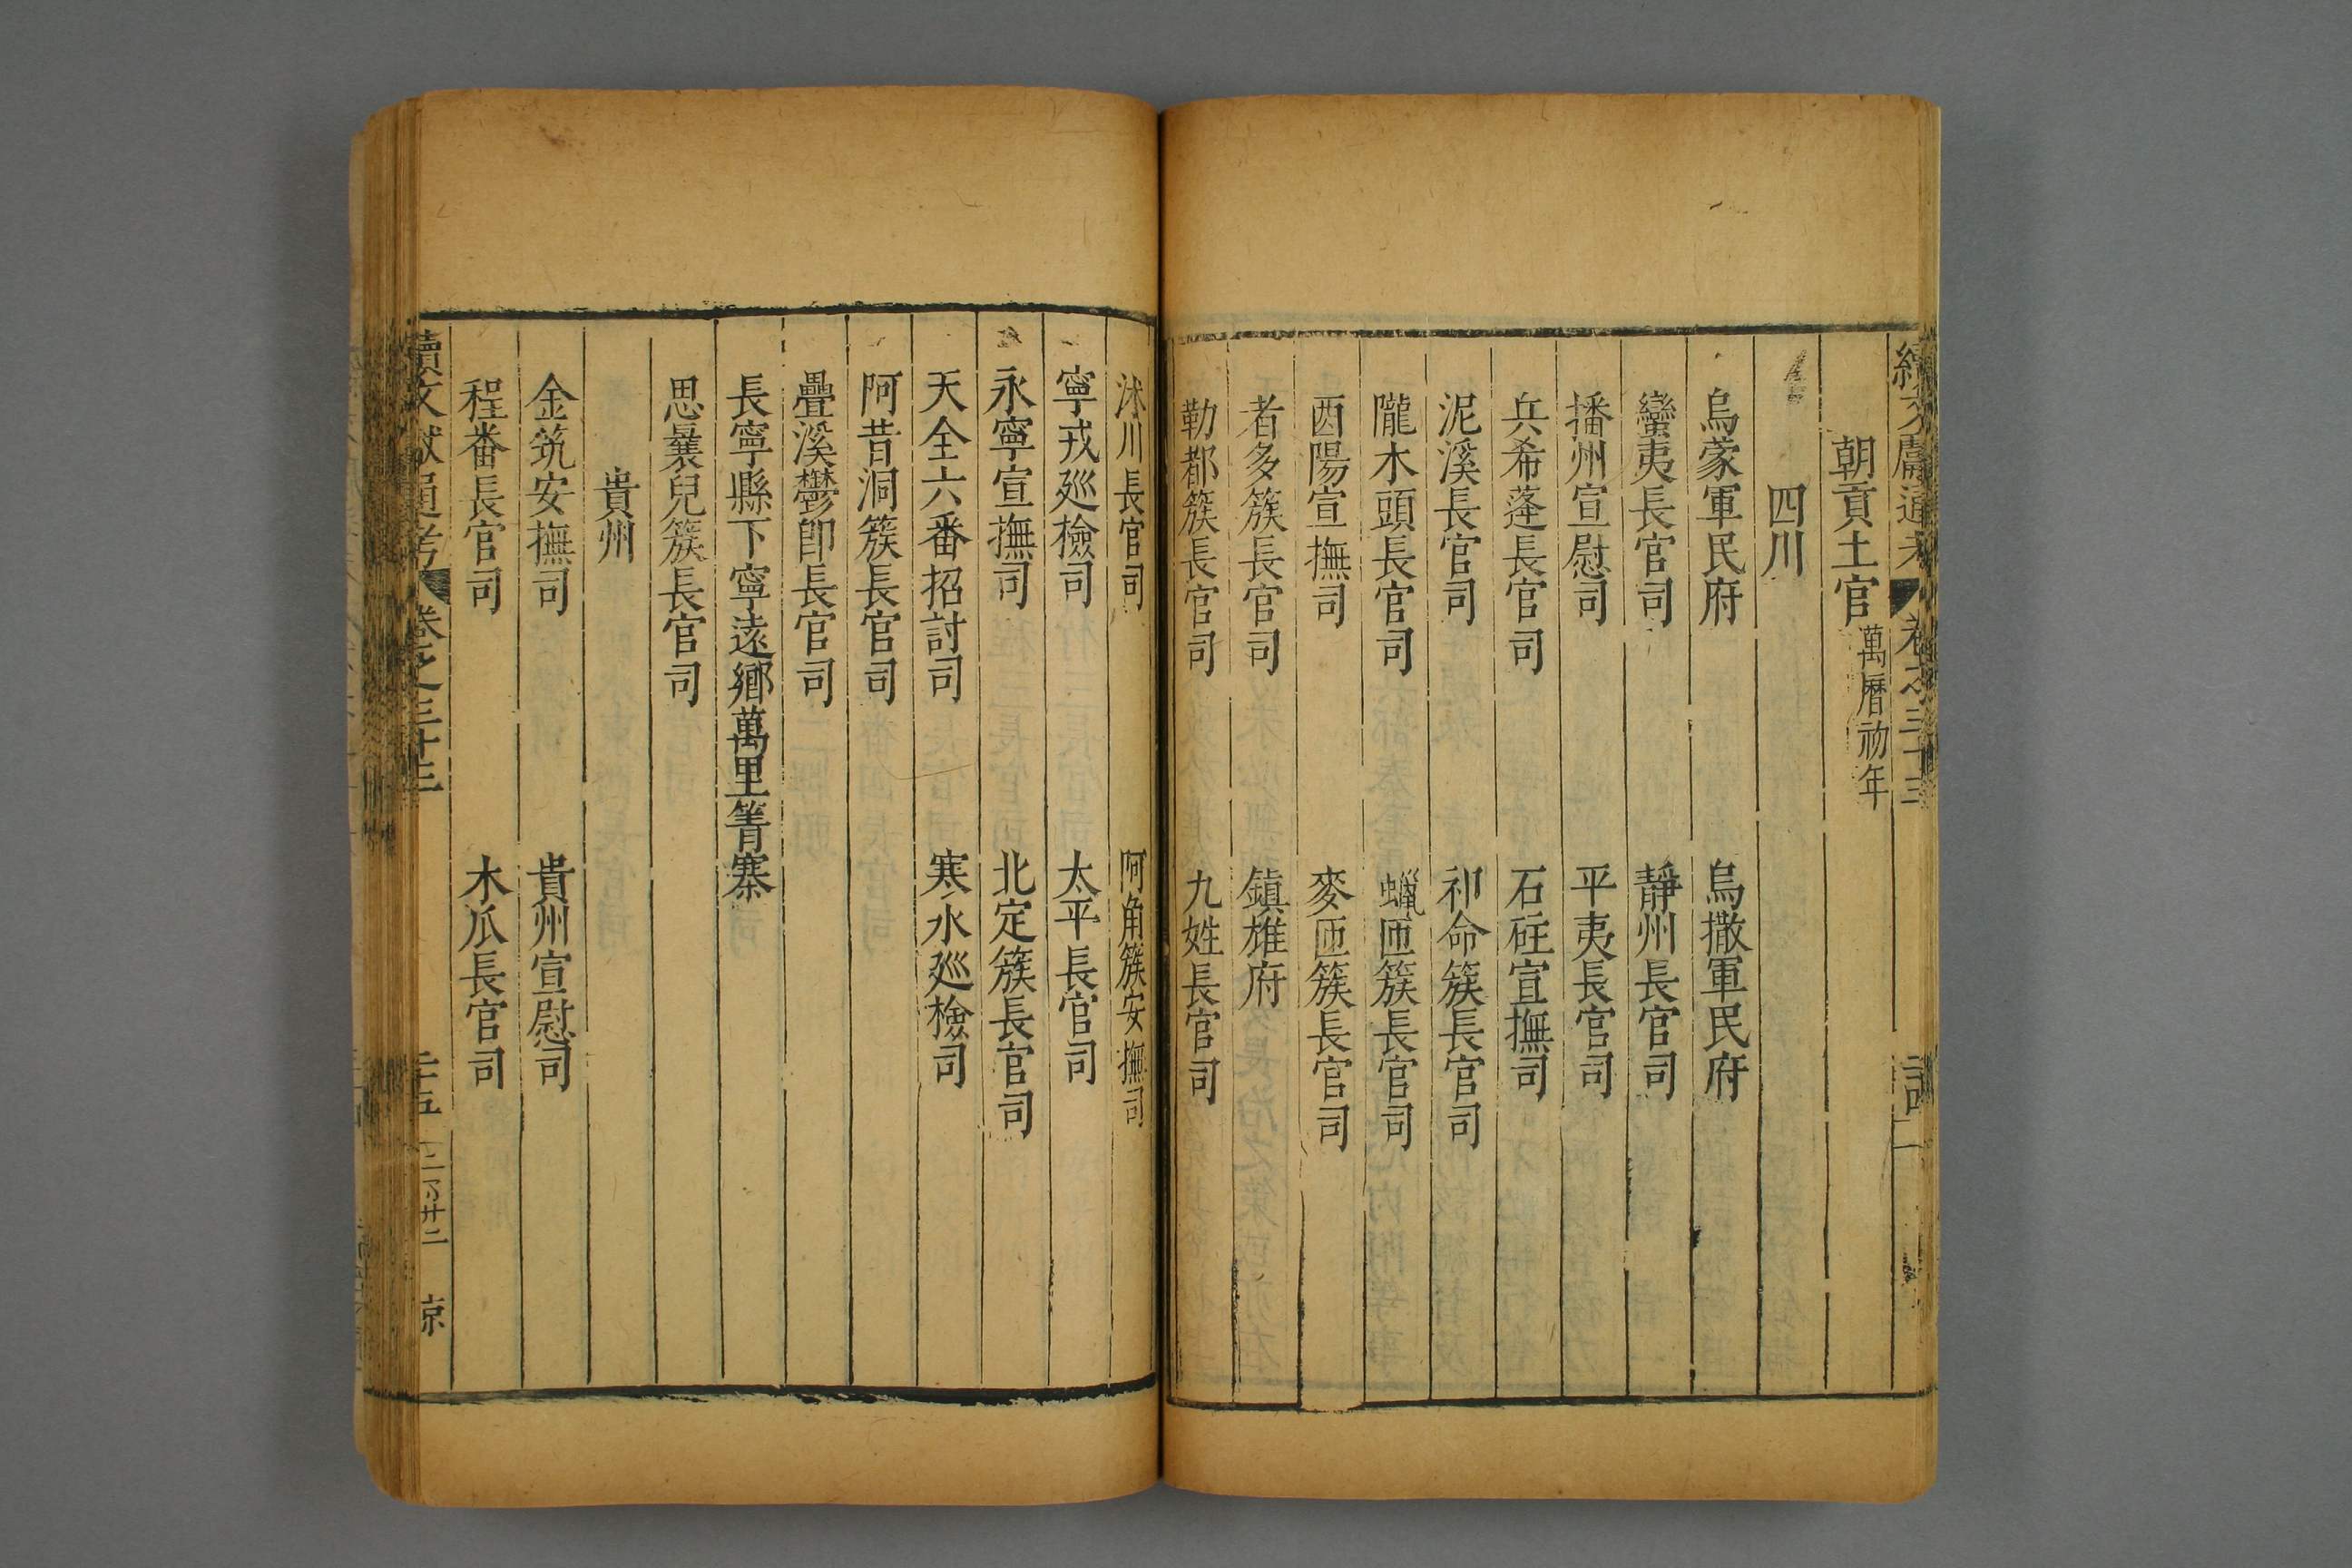 續文獻通考 卷之三十三
朝貢土官 萬曆初年
四川
烏蒙軍民府 烏撒軍民府
蠻夷長官司 靜州長官司
播州宣慰司 平夷長官司
兵希蓬長官司 石砫宣撫司
泥溪長官司 祁命簇長官司
隴木頭長官司 蠟匝簇長官司
酉陽宣撫司 麥匝簇長官司
者多簇長官司 鎮雄府
勒都簇長官司 九姓長官司
沭川長官司 阿角簇安撫司
寧戎廵檢司 太平長官司
永寧宣撫司 北定簇長官司
天全六番招討司 寒水廵檢司
阿昔洞簇長官司
疊溪鬱即長官司
長寧縣下寧遠鄉萬里箐寨
思曩兒簇長官司
貴州
金筑安撫司 貴州宣慰司
程番長官司 木瓜長官司
續文獻通考 卷之三十三 二十五